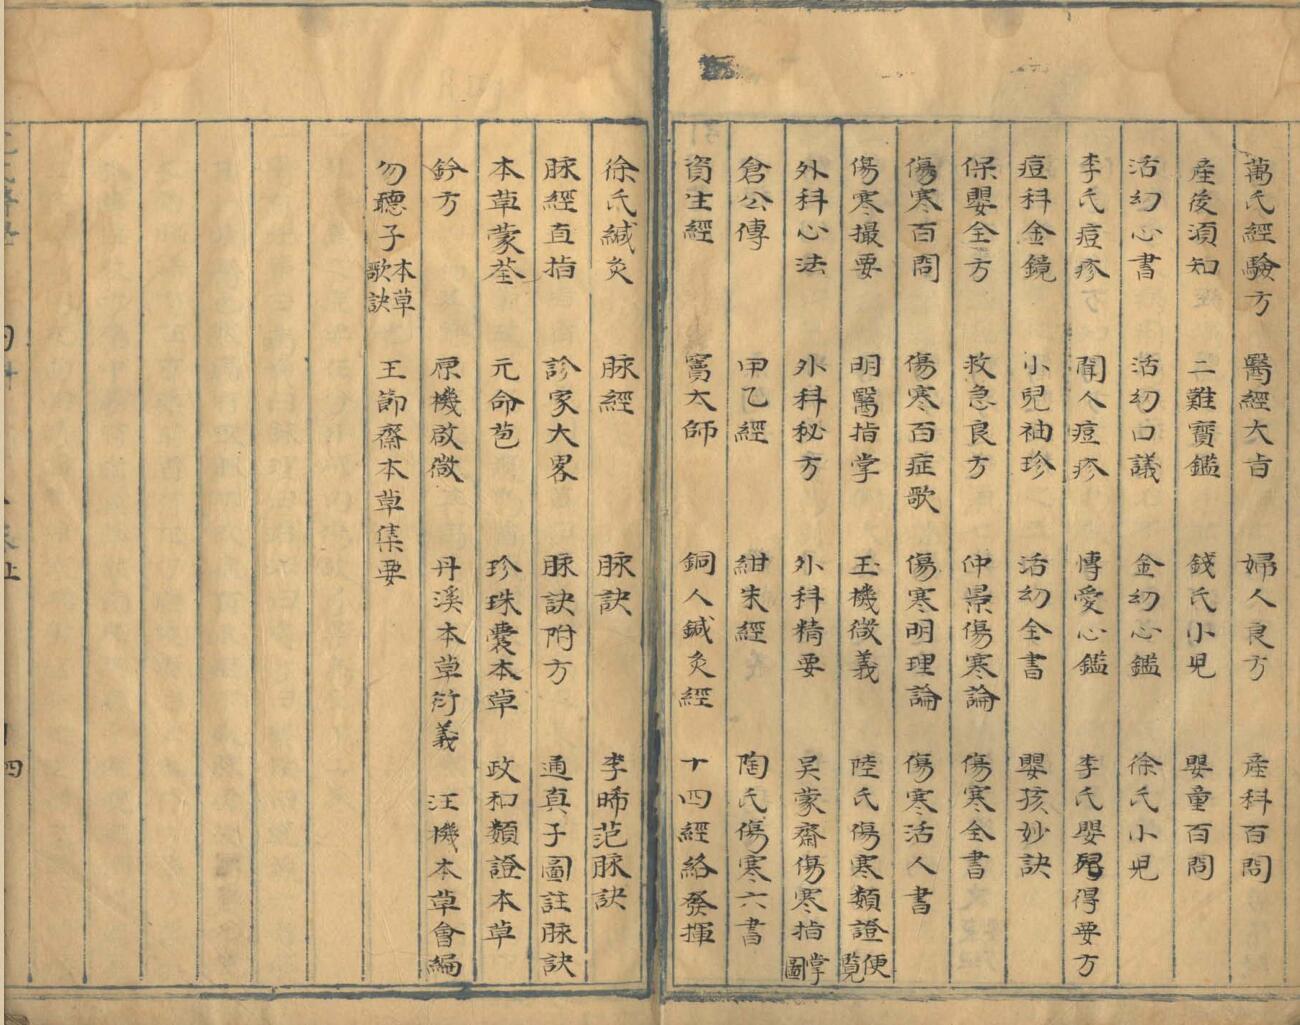 萬氏經驗方 醫經大旨 婦人良方 產科百問
產後須知 二難寶鑑 錢氏小児 嬰童百問
活幻心書 活幻口議 金幻心鑑 徐氏小児
李氏痘疹 聞人痘疹 博愛心鑑 李氏嬰児得要方
痘科金鏡 小兒袖珍 活幻全書 嬰孩妙訣
保嬰全方 救急良方 仲景傷寒論 傷寒全書
傷寒百問 傷寒百症歌 傷寒明理論 傷寒活人書
傷寒撮要 明醫指掌 玉機微義 陸氏傷寒類證便覽
外科心法 外科秘方 外科精要 吳蒙齋傷寒指掌圖
倉公傳 甲乙經 紺朱經 陶氏傷寒六書
資生經 竇太師 銅人鍼灸經 十四經絡發揮
徐氏緘灸 脉經 脉訣 李晞范脉訣
脉經直指 診家大畧 脉訣附方 通真子圖註脉訣
本草蒙荃 元命苞 珍珠囊本草 政和類證本草
鈐方 原機啟微 丹溪本草衍義 汪機本草會編
勿聽子本草歌訣 王節齋本草集要
四